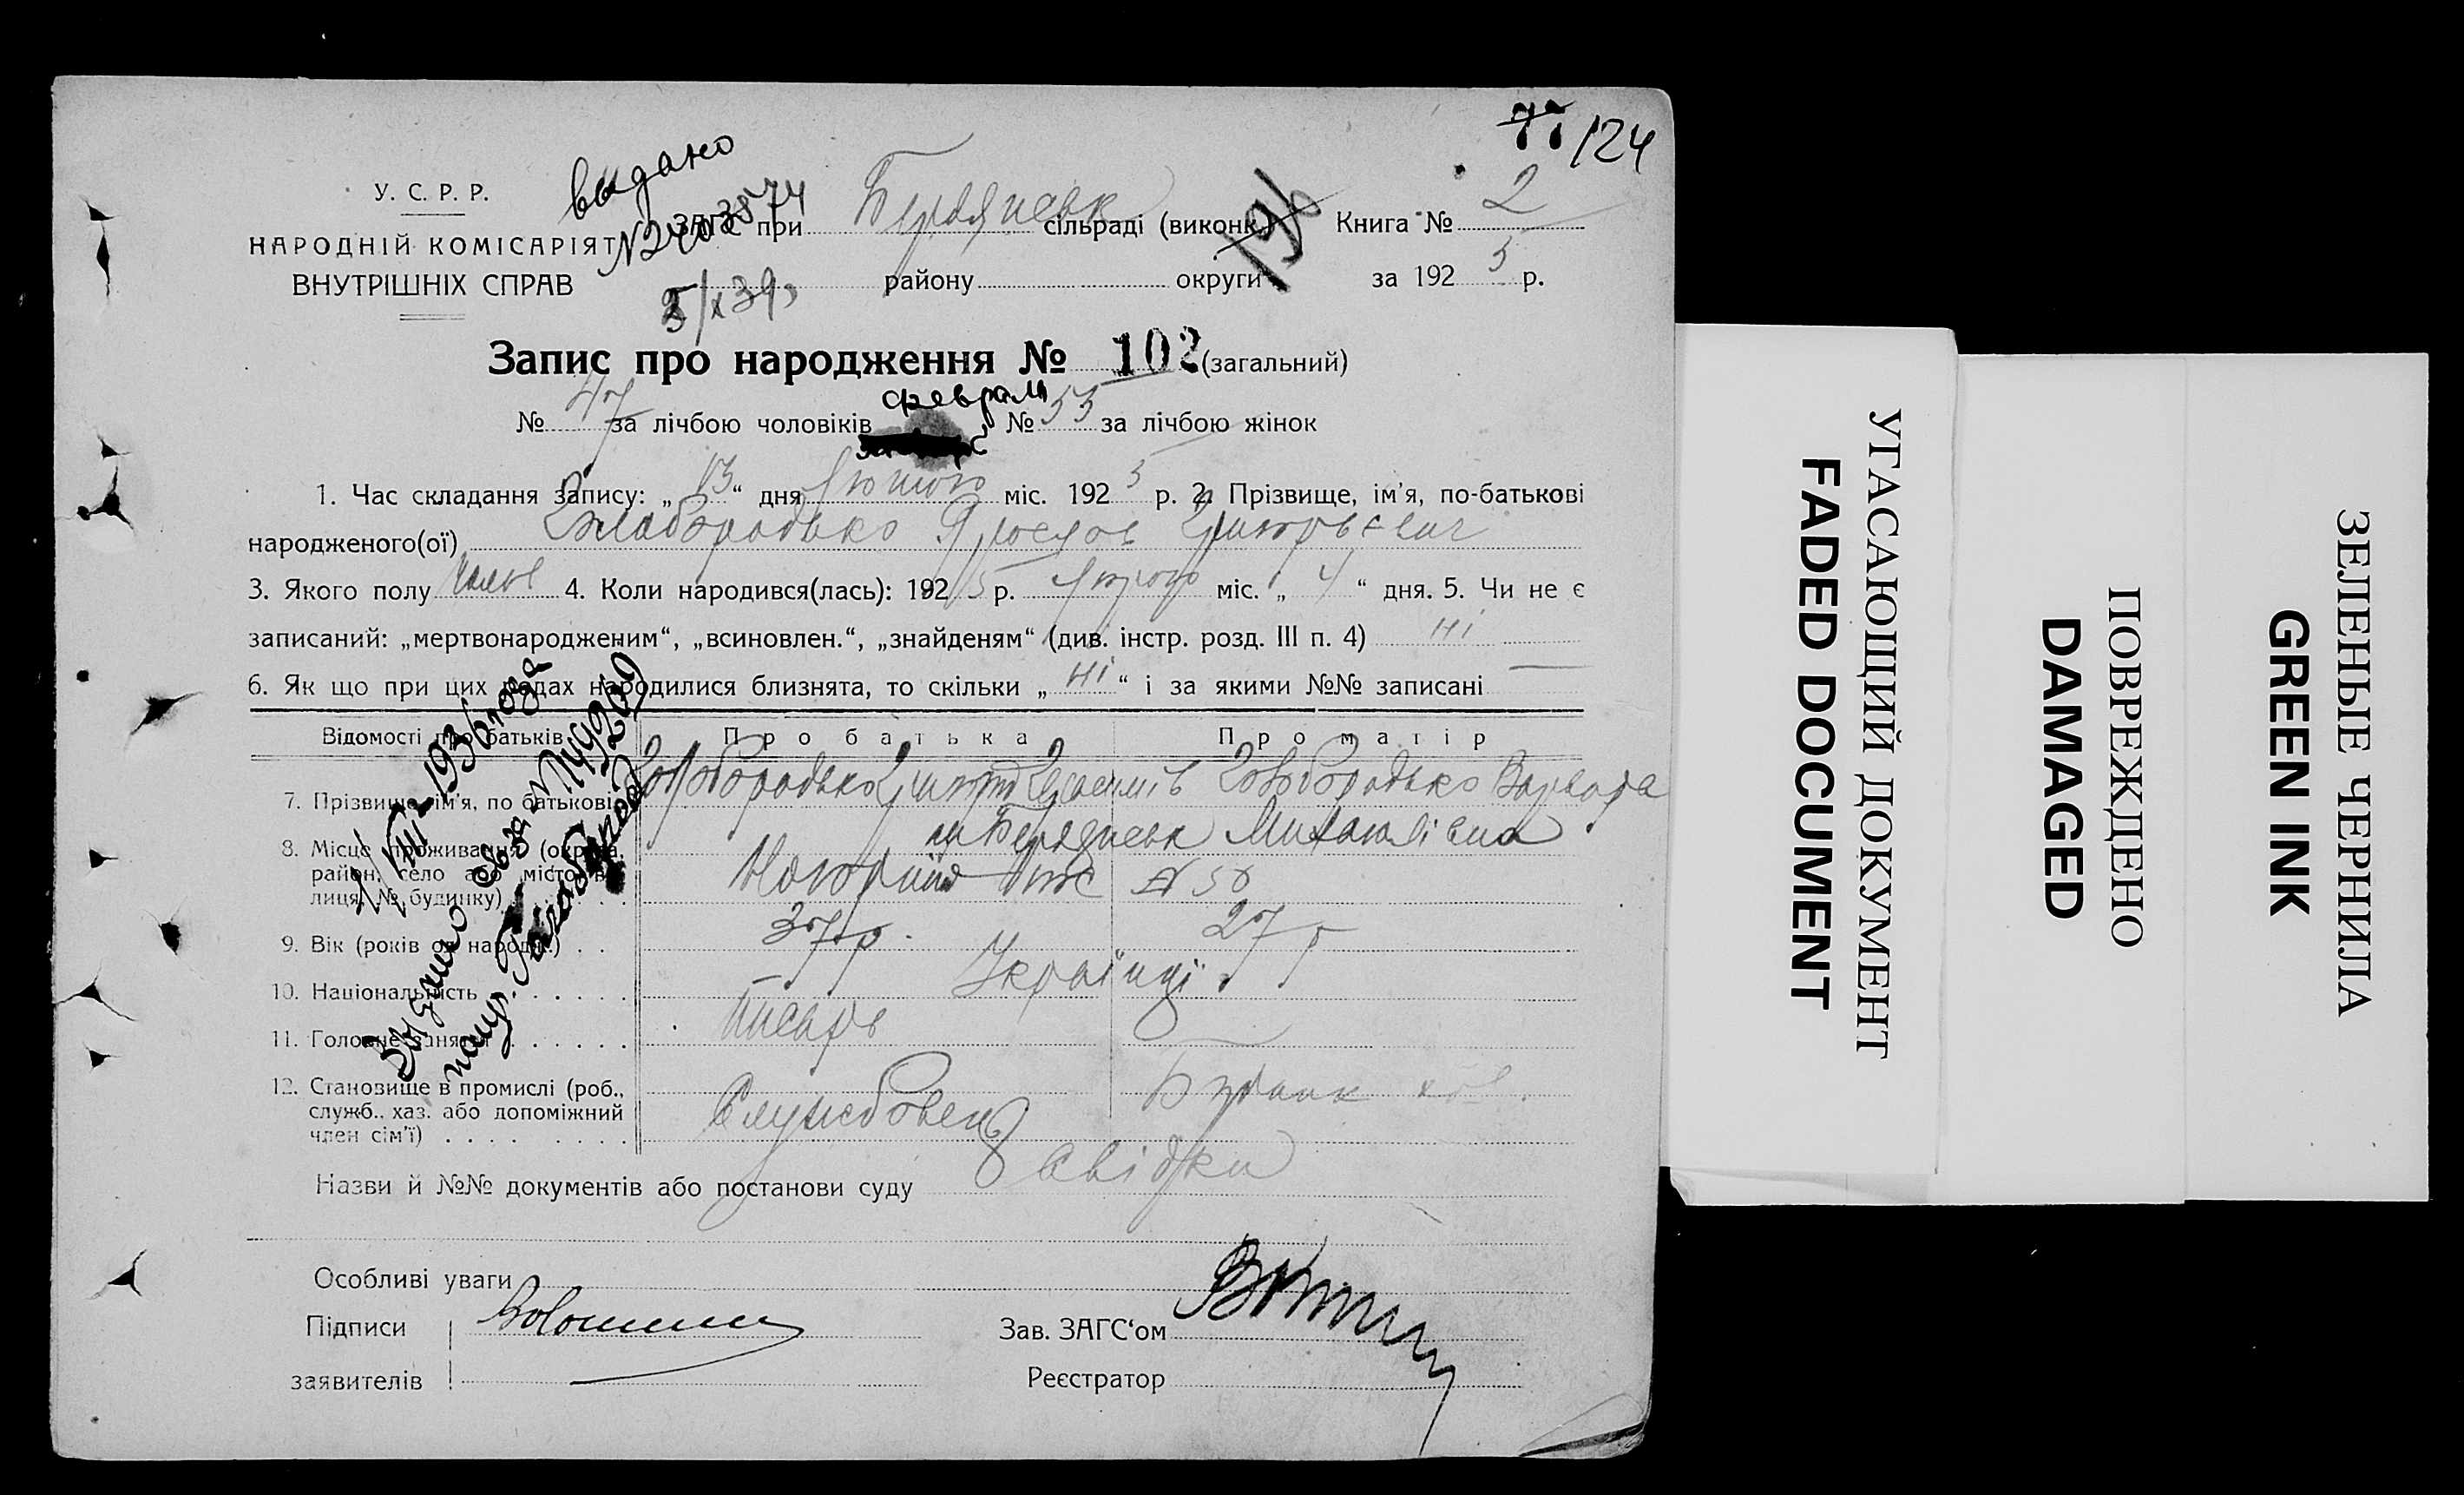 77/124
У. С. Р. Р.
НАРОДНІЙ КОМІСАРІЯТ
ВНУТРІШНІХ СПРАВ
выдано
ЗАГС при Бердянськ сільраді (виконк.) Книга № 2
196
району округи за 1925 р.
Запис про народження № 102 (загальний)
февраля
№ 47 за лічбою чоловіків № 55 за лічбою жінок
1. Час складання запису: „13“ дня лютого міс. 1925 р. 2. Прізвище, ім'я, по-батькові
народженого(ої)
3. Якого полу 4. Коли народився(лась): 1925 р. лютого міс. „4“ дня. 5. Чи не є
записаний: „мертвонародженим“, „всиновлен.“, „знайденям“ (див. інстр. розд. III п. 4) ні
6. Як що при цих родах народилися близнята, то скільки „ні“ і за якими №№ записані —
Відомості про батьків Про батька Про матір
7. Прізвище, ім'я, по батькові Варвара
Бердянськ Михайлівна
8. Місце проживання (округа,
район, село або місто, ву-
лиця, № будинку) № 50
9. Вік (років од народж.) 37 р. 27 р
10. Національність Українці
11. Головне заняття писарь
12. Становище в промислі (роб.,
служб., хаз. або допоміжний
член сім'ї) Службовець
Назви й №№ документів або постанови суду Свідки
1936 года
Выдано
Особливі уваги
Підписи
заявителів
Зав. ЗАГС‘ом
Реєстратор
УГАСАЮЩИЙ ДОКУМЕНТ
FADED DOCUMENT
ПОВРЕЖДЕНО
DAMAGED
ЗЕЛЕНЫЕ ЧЕРНИЛА
GREEN INK